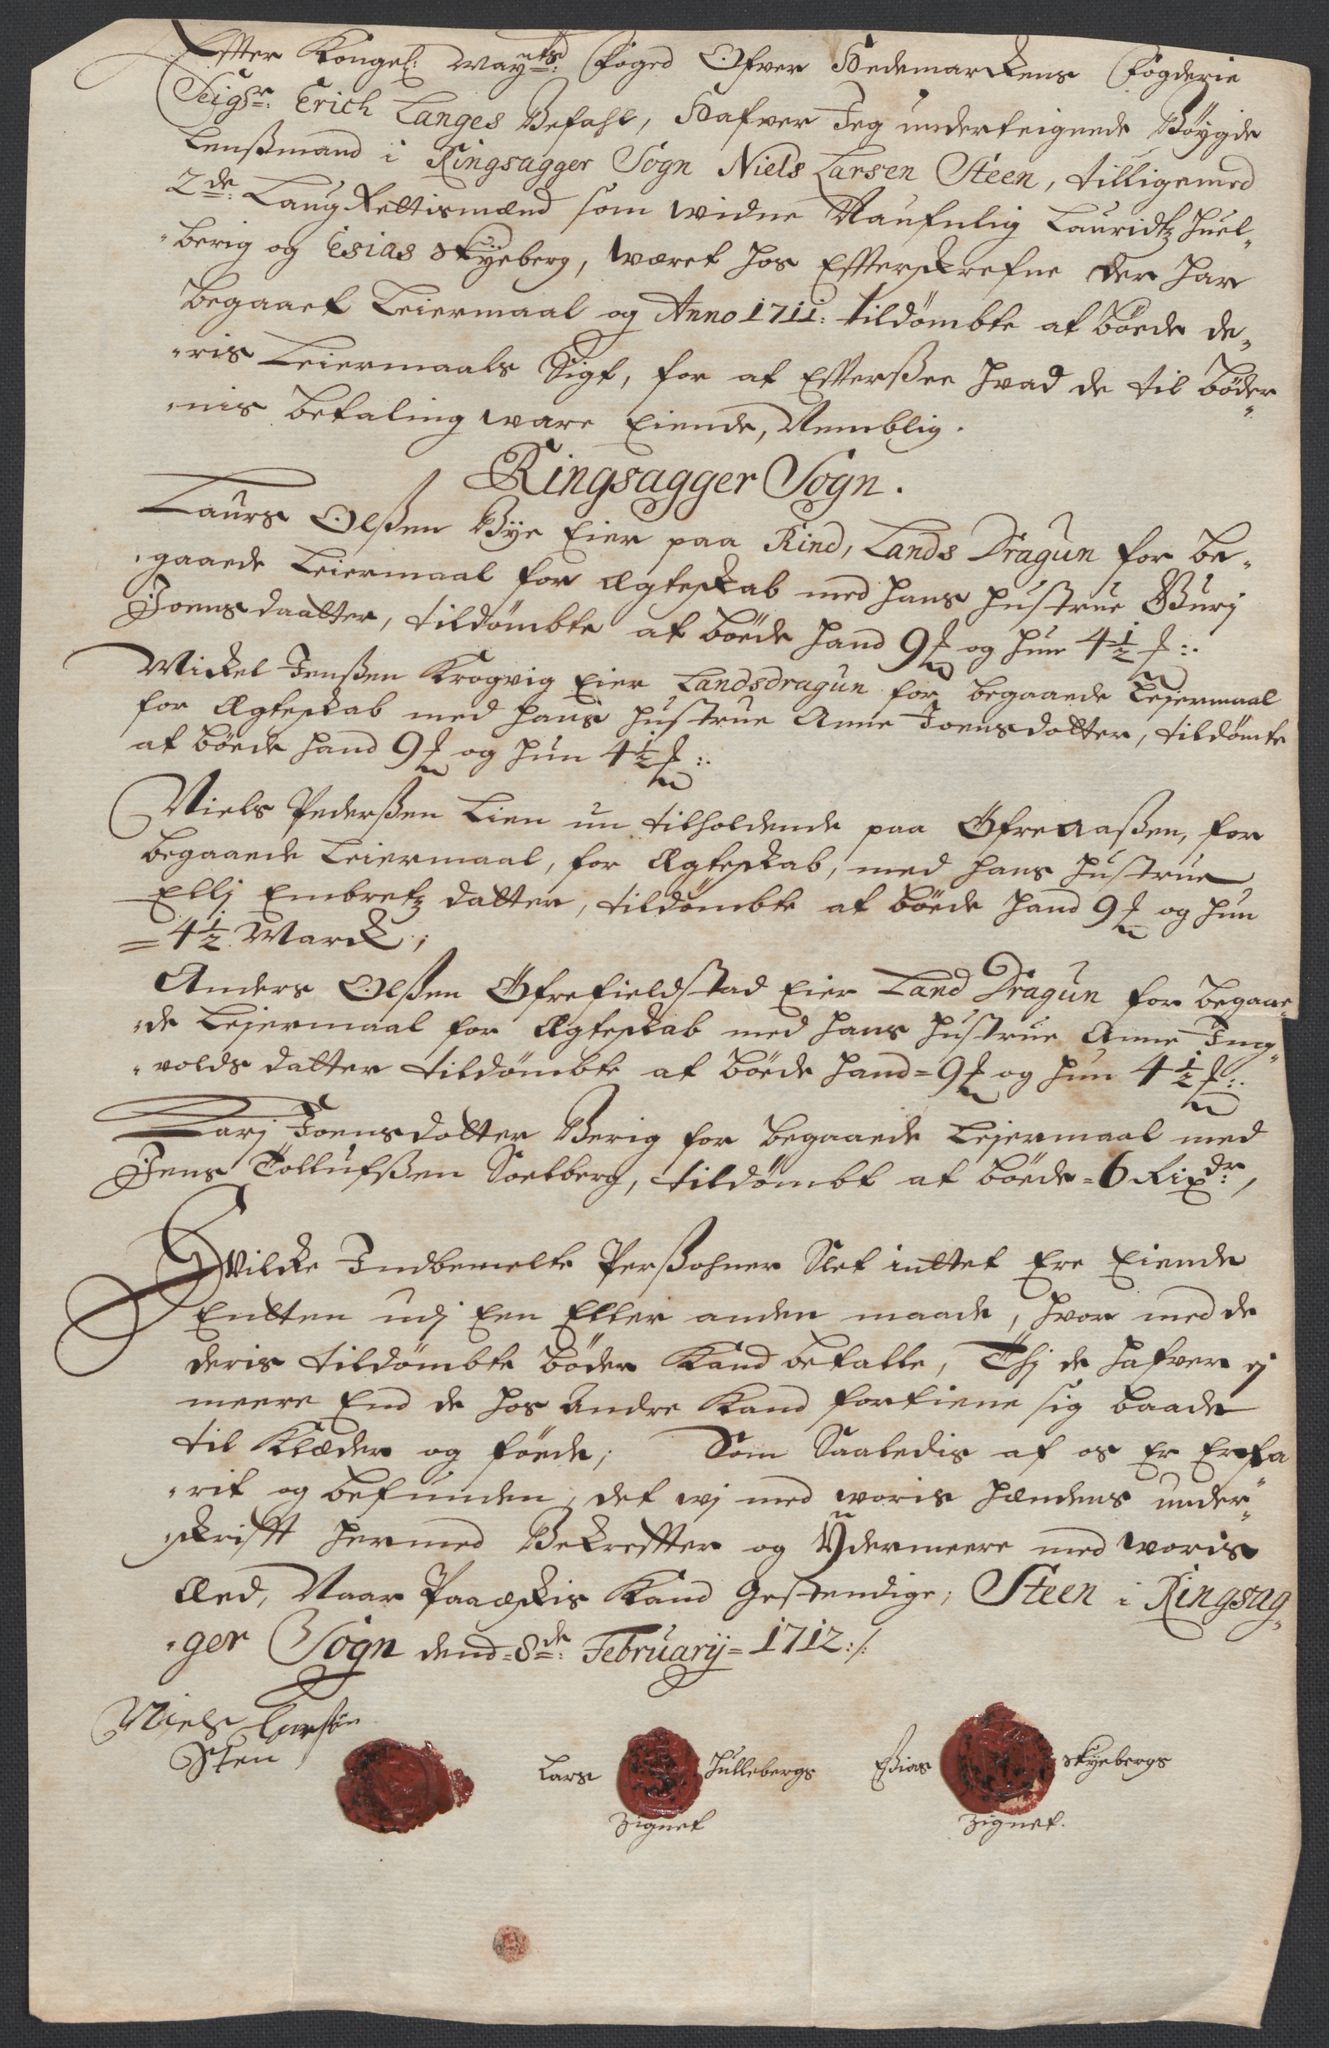 Effter Kongel: Mayts: Foged Ofver Hedemarckens Fogderie
Seigr: Erich Langes Befahl, Hafver Jeg underteignede Böygde
Lenßmand i Ringsagger Sogn Niels Larsen Steen, tilligemed
2de: Laug Rettismænd som widne Naufnlig Lauridtz Huel-
berig og Esias Skÿeberg, wæret hos Effterskrefne der har
begaaet Leiermaal og Anno 1711: tildömbte at böede de-
ris Leiermaals Sigt, for at Effterßee hvad de til böder-
nis betaling ware Eiende, Nemblig.
Ringsagger Sogn.
Laurs Olßen Bye Eier paa Rind, Lands Dragun for be-
gaaede Leiermaal for Ægteskab med hans hustrue Gurj
Joensdaatter, tildömbte at böede hand 9 ℳ og hun 4½ ℳ:
Mickel Jenßen Krogvig Eier Landsdragun for begaaede Leiermaal
for Ægteskab med hans hustrue Anne Joensdatter, tildömte
at böede hand 9 ℳ og hun 4½ ℳ:
Niels Pederßen Lien nu tilholdende paa Öfreaaßen, for
begaaede Leiermaal, for Ægteskab, med hans hustrue
Ellj Embretz datter, tildömbte at böede hand 9 ℳ og hun
= 4½ Marck;
Anders Olßen Öfrefieldstad Eier Land Dragun for begaae-
de Leiermaal for Ægteskab med hans hustrue Anne Ing-
volds datter tildömbte at böede hand = 9 ℳ og hun 4½ ℳ:
Karj Joensdatter Berig for begaaede Leiermaal med
Jens Tollufßen Soelberg, tildömbt at böede = 6 Rixdr:,
Hvilcke Indbemelte Perßohner Slet inttet Ere Eiende
Entten udj Een Eller anden maade, hvor med de
deris tildömbte böder Kand betalle, Thj de hafver ej
meere End de hos Andre Kand fortiene sig baade
til Klæder og föede; Som Saaledis af os Er Erfa
rit og befunden, det wj med woris hændens under-
skrifft hermed Bekreffter og Ydermeere med woris
Æed, Naar Paaæskis Kand Gestendige; Steen i Ringsag-
ger Sogn dend = 8de: Februarij = 1712:/:
Niels Larsön
Sten
Lars Hullebergs
Zignet
Esias Skÿebergs
Zignet.